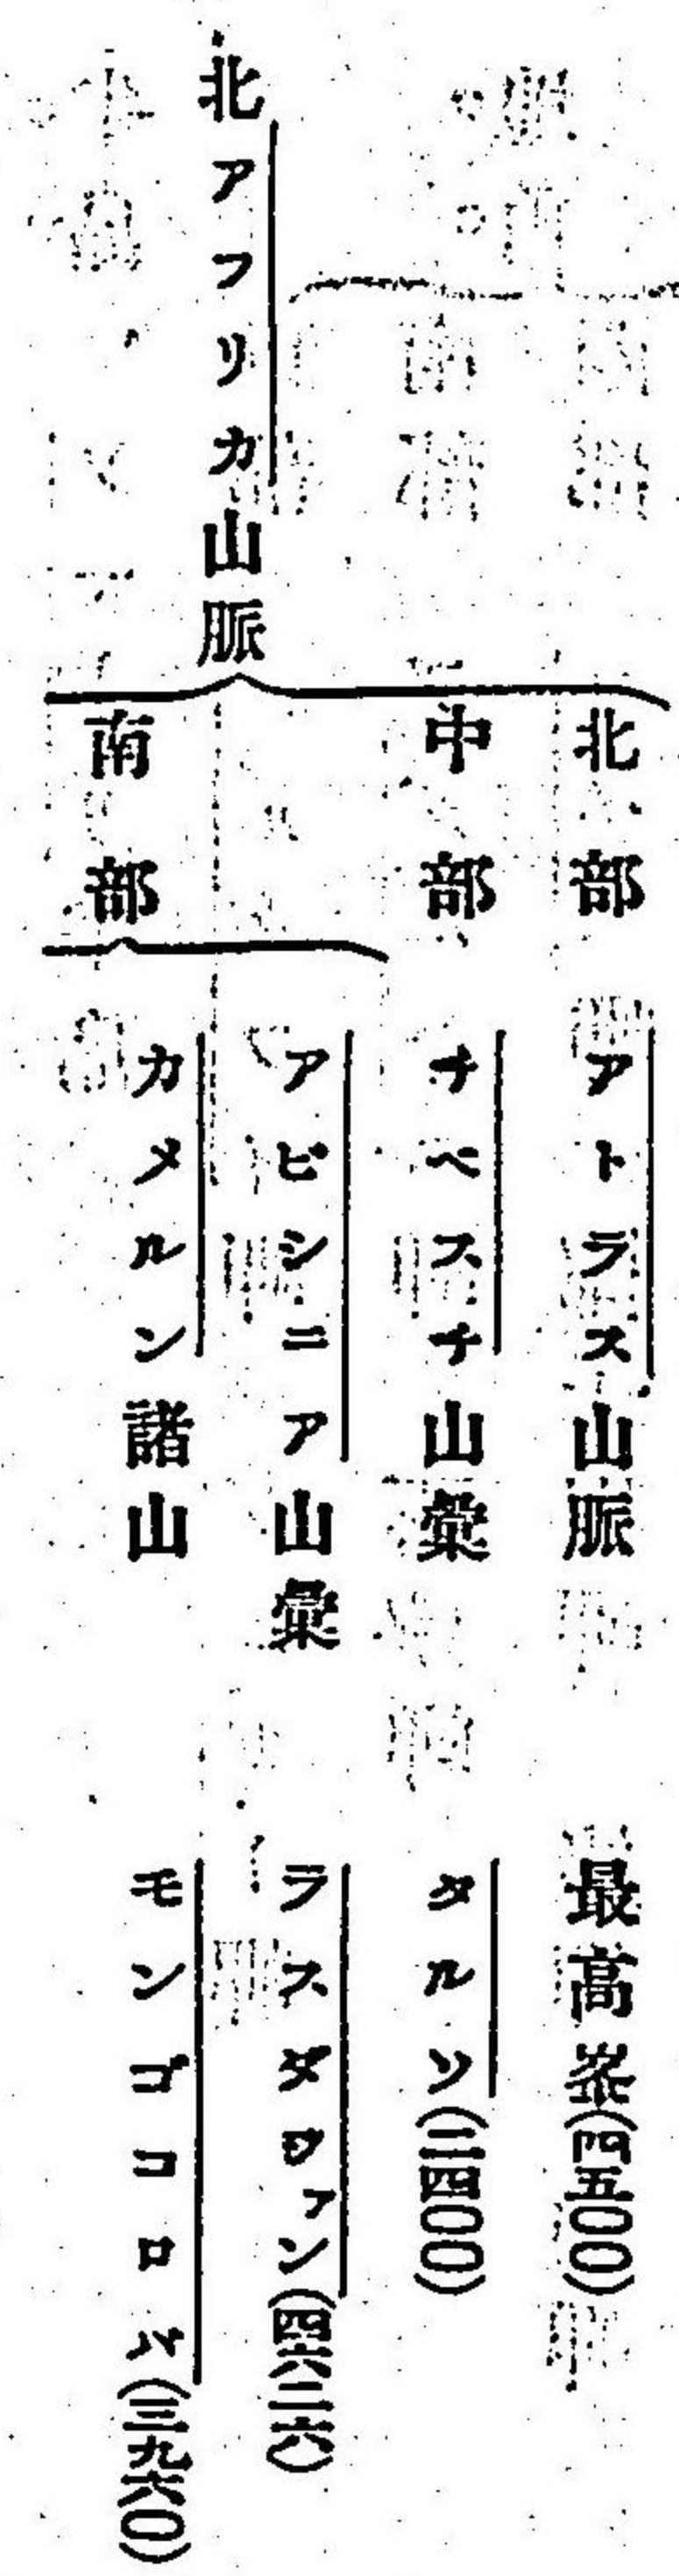 北アフリカ山脈
北部 アトラス山脈 最高峯(四五〇〇)
中部 チベスチ山彙 タルソ(二四〇〇)
南部
アビシニア山彙 ラスダワァン(四六二六)
カメルン諸山 モンゴコロバ(三九六〇)